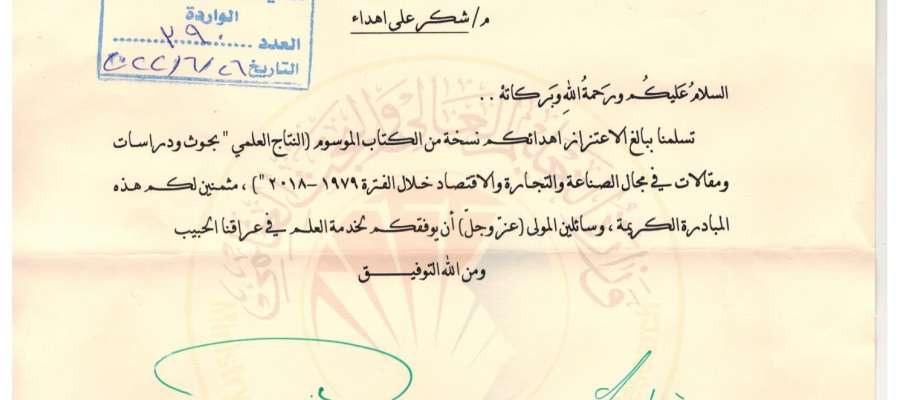 الواردة
العدد ٣٩٠
التاريخ ٢٠٢٢/٦/٢٦
م/ شكر على اهداء
السلامُ عَليكُم ورَحمةُ اللهِ وبَركاتهُ . .
تسلمنا ببالغ الاعتزاز اهدائكم نسخة من الكتاب الموسوم (النتاج العلمي " بحوث ودراسات
ومقالات في مجال الصناعة والتجارة والاقتصاد خلال الفترة ١٩٧٩ –٢٠١٨ ") ، مثمنين لكم هذه
المبادرة الكريمة ، وسائلين المولى (عزّ وجلّ) أن يوفقكم لخدمة العلم في عراقنا الحبيب
ومن الله التوفيـــــق